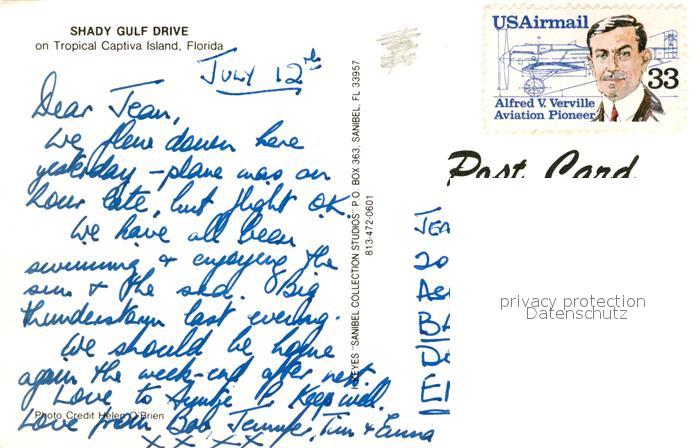 SHADY GULF DRIVE
on Tropical Captiva Island, Florida
JULY 12th
Dear Jean,
We flew down here
yesterday – plane was an
hour late, but flight OK.
We have all been
swimming & enjoying the
sun & the sea. Big
thunderstorm last evening.
We should be home
again the week-end after next.
Love to Auntie P. Keep well.
Photo Credit Helen O'Brien
Love from Bob, Jennifer, Tim & Emma
X X X X
"SANIBEL COLLECTION STUDIOS" P.O. BOX 363, SANIBEL, FL 33957
813-472-0601
USAirmail
33
Alfred V. Verville
Aviation Pioneer
Post Card
JEA
20
privacy protection
Datenschutz